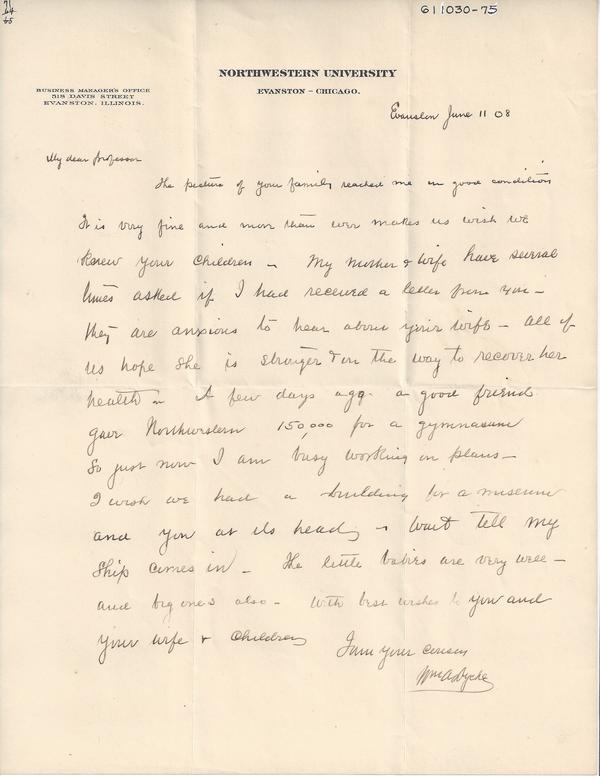 71
64
65
611030-75
NORTHWESTERN UNIVERSITY
EVANSTON – CHICAGO.
BUSINESS MANAGER'S OFFICE
518 DAVIS STREET
EVANSTON, ILLINOIS.
Evanston June 11 08
My dear Professor
The picture of your family reached me in good condition
It is very fine and more than ever makes us wish we
knew your children – My mother & wife have several
times asked if I had received a letter from you –
they are anxious to hear about your wife – all of
us hope she is stronger & on the way to recover her
health – A few days ago a good friend
gave Northwestern 150,000 for a gymnasium
So just now I am busy working on plans –
I wish we had a building for a museum
and you at its head – Wait till my
Ship comes in – The little babies are very well –
and big ones also – With best wishes to you and
your wife & children
I am your cousin
Wm A Dyche